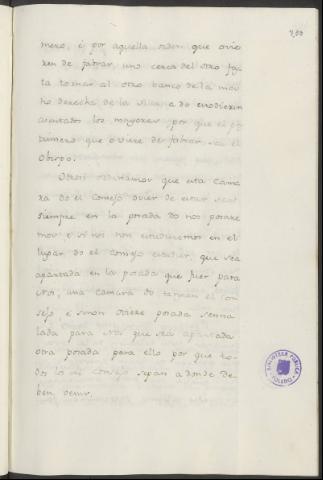 mero, è por aquella orden que ovie
ren de fablar, uno cerca del otro fas
ta tornar al otro banco de la ma
no derecha de la silla a do estodieren
asentados los mayores por que el pos
trimero que oviere de fablar sea el
Obispo.
Otrosi ordenamos que esta Cama
ra do el Consejo ovier de estar sea
siempre en la posada do nos posare
mos e si nos non estudieremos en el
lugar do el consejo estudier, que sea
apartada en la posada que fuer para
Nos, una camara do tengan el con
sejo, e si non oviere posada senna
lada para Nos que sea apartada
otra posada para ello por que to
dos los del Consejo sepan a donde de
ben venir.
BIBLIOTECA PUBLICA
TOLEDO